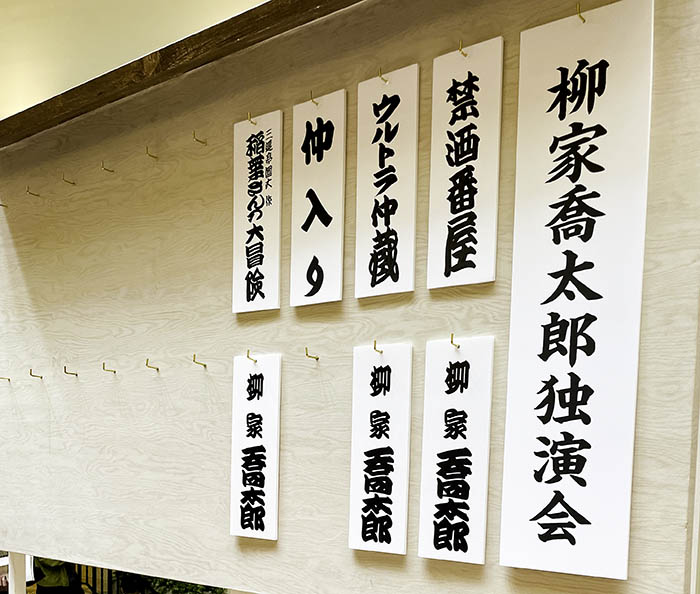 柳家喬太郎独演会
禁酒番屋
柳家喬太郎
ウルトラ仲蔵
柳家喬太郎
仲入り
三遊亭圓丈作
稲葉さんの大冒険
柳家喬太郎